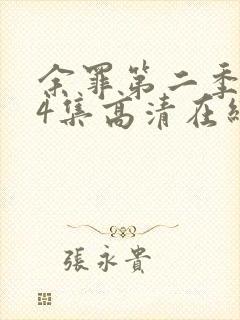 余罪第二季
4集高清在线
張永貴